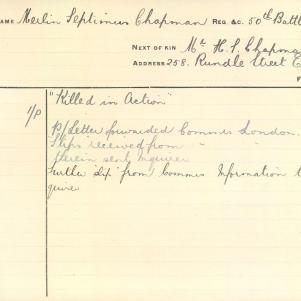 NAME Merlin Septimus Chapman REG. &C. 50th Battl
NEXT OF KIN Mr H. S. Chapma
ADDRESS 258 Rundle Street E
F
"Killed in Action"
1/P
P/Letter forwarded Commrs London
Slips received from " "
therein sent Inquirer
Further slip from Commrs Information t
quirer